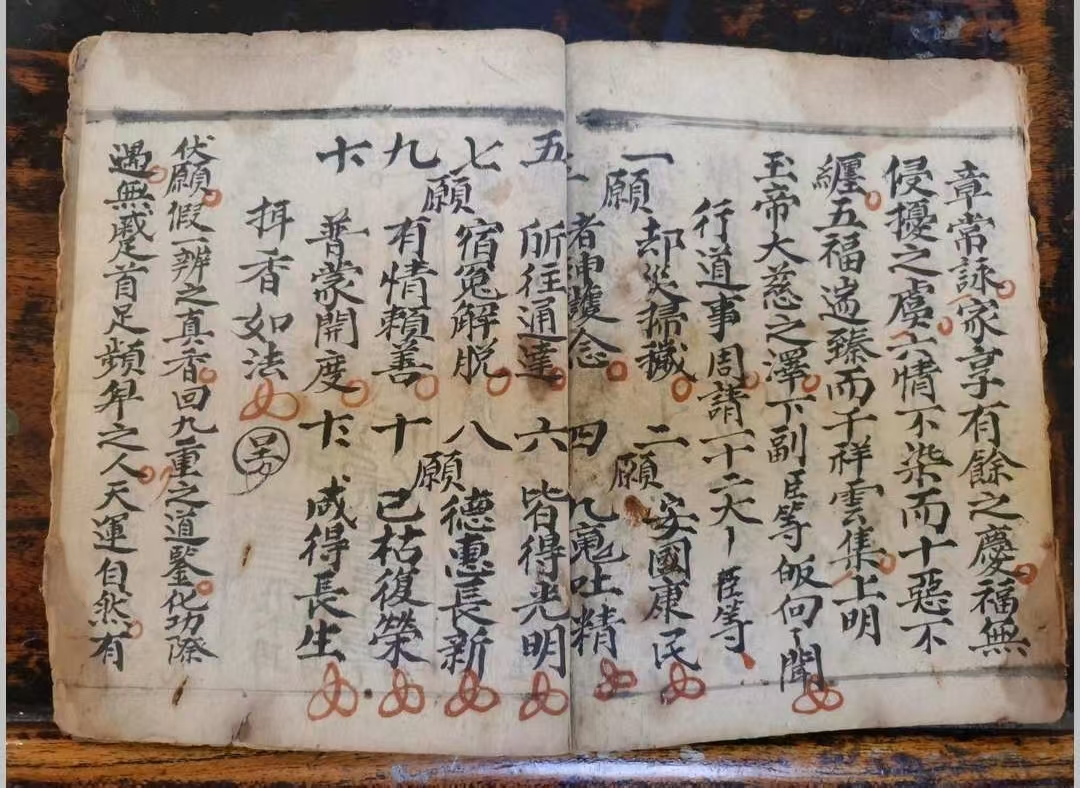 章常詠家享有餘之慶福無
侵擾之虞六情不染而十惡不
纒五福遄臻而千祥雲集上明
玉帝大慈之澤下副臣等皈向聞
行道事周請十二大臣等
一願却災掃穢 二願安國康民
者神護念 四 九竅吐精
五 所往通達 六 皆得光明
七願宿冤解脫 八願德惠長新
九 有情賴善 十 已枯復榮
普蒙開度 咸得長生
揖香如法
伏願假一辨之真香回九重之道鑒化功際
遇無感首足頻年之人天運自然有